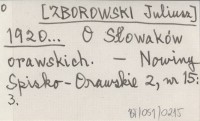 o
[ZBOROWSKI Juliusz]
1920... O Słowaków
orawskich. – Nowiny
Spisko-Orawskie 2, nr 15:
3.